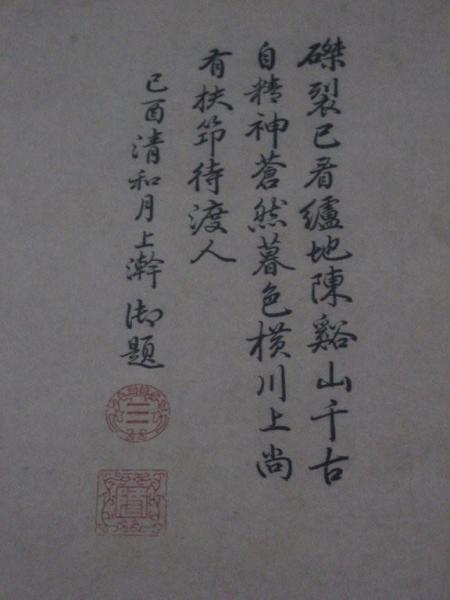 磔裂已看纑地陳谿山千古
自精神蒼然暮色橫川上尚
有扶筇待渡人
己酉清和月上澣御題